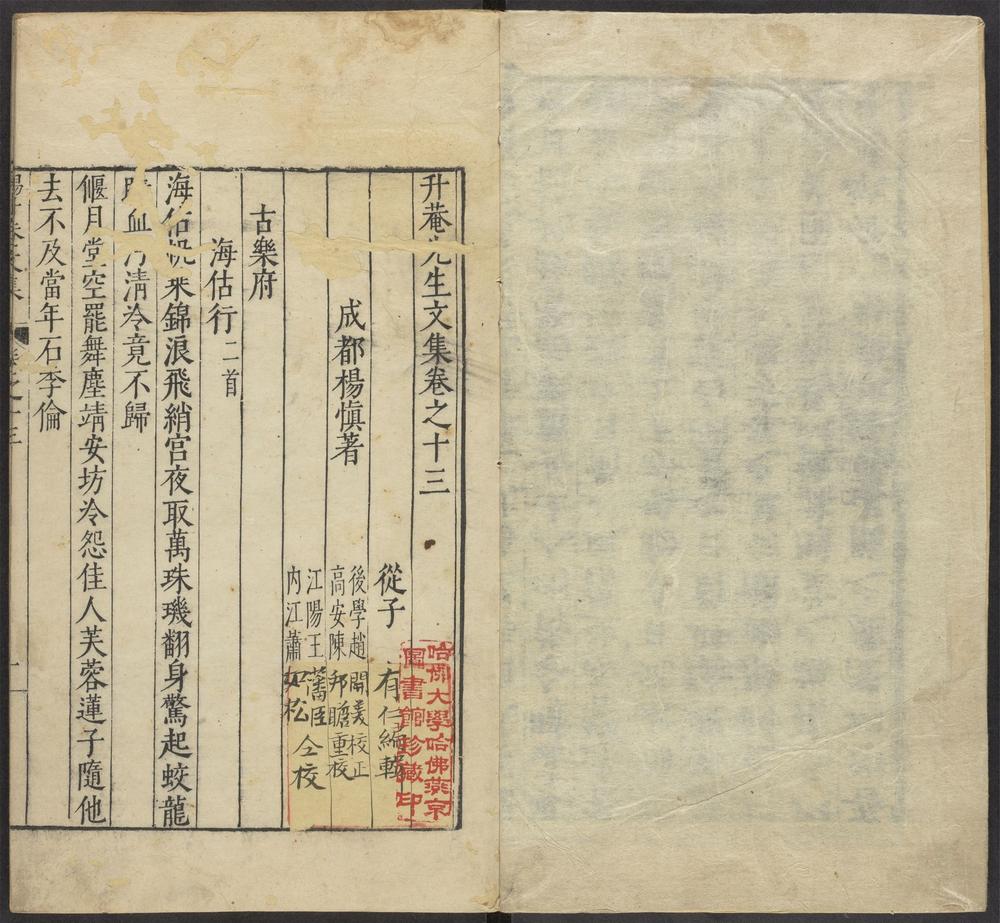 升菴先生文集卷之十三
從子 有仁編輯
成都楊慎著
後學趙開美校正
高安陳邦瞻重校
江陽王藩臣
內江蕭如松仝校
古樂府
海估行二首
海估帆乘錦浪飛綃宮夜取萬珠璣翻身驚起蛟龍
血污清冷竟不歸
偃月堂空罷舞塵靖安坊冷怨佳人芙蓉蓮子隨他
去不及當年石季倫
哈佛大學哈佛燕京
圖書館珍藏印